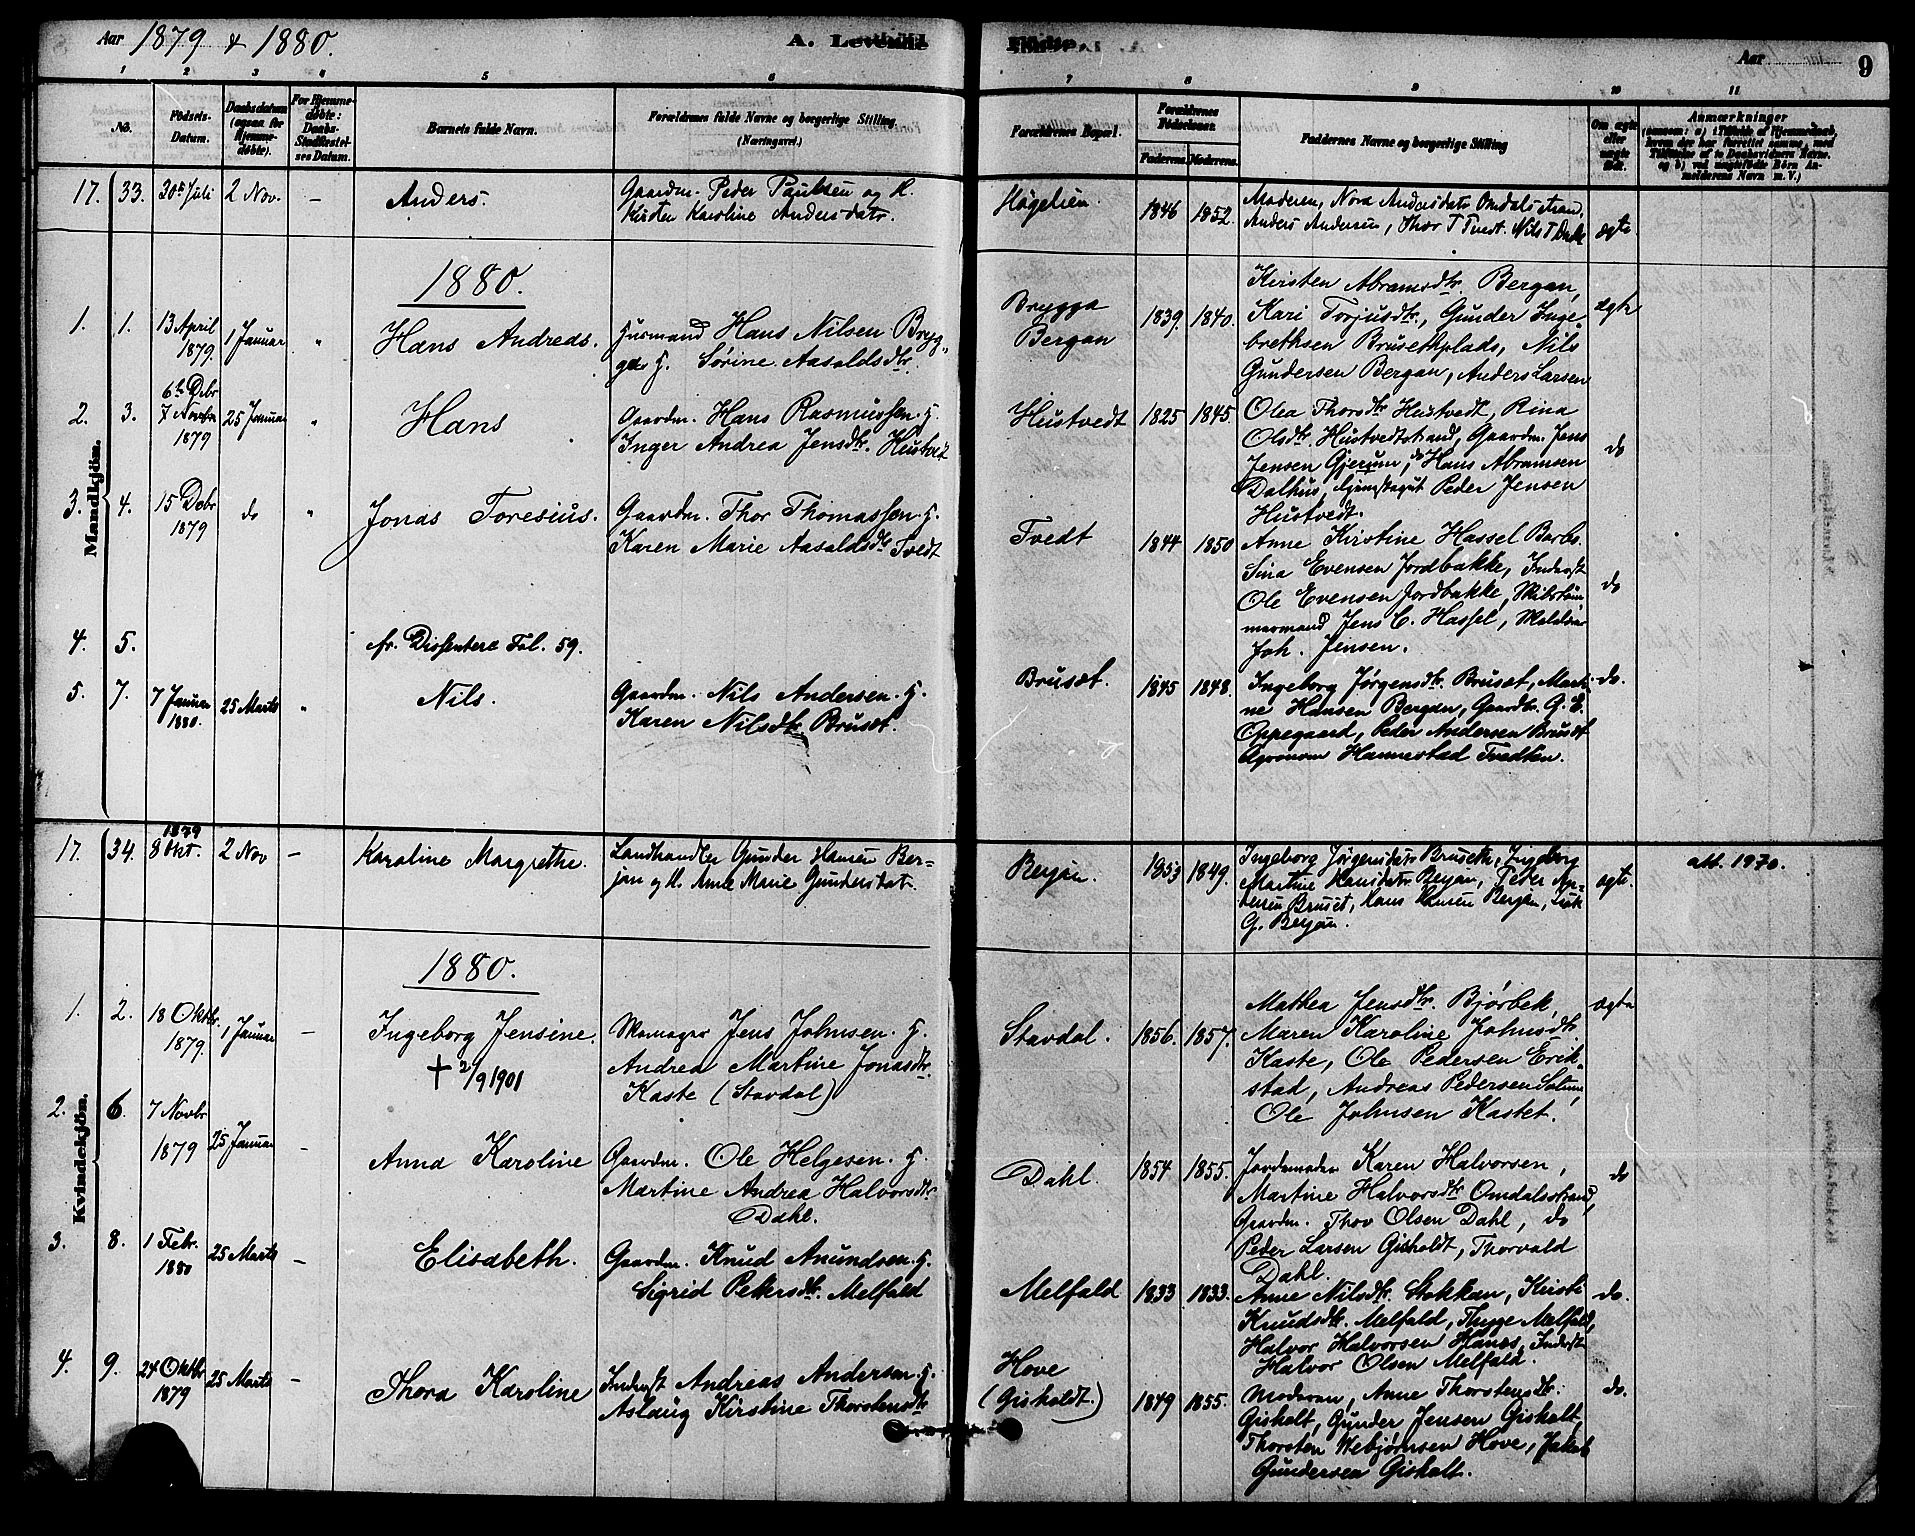 Aar 1879 & 1880.
A. Levende
Fødte.
Aar
9
1 2 3 4 5 6 7 8 9 10 11
No.
Fødsels-Datum.
Daabsdatum (ogsaa for Hjemme-døbte).
For Hjemme-døbte: Daabs-Stadfæstel-ses Datum.
Barnets fulde Navn.
Forældrenes fulde Navne og borgerlige Stilling. (Næringsvei.)
Forældrenes Bopæl.
Forældrenes Fødselsaar.
Faderens. Moderens.
Faddernes Navne og borgerlige Stilling
Om ægte eller uægte
Anmærkninger
Mandkjön.
17. 33. 30te Juli 2 Nov. – Anders. Gaardm. Peder Paulsen og H.
Kirsten Karoline Andersdatr.
Høgelien. 1846 1852.
Moderen, Nora Andersdatr Omdalsstrand,
Anders Andersen, Thor T Tvedt. Nils T
ægte
1880.
1. 1. 13 April 1879. 1 Januar " Hans Andreas. Husmand Hans Nilsen Bryg-
ga H. Sørine Aasoldsdtr.
Brygga
Bergan
1839. 1840.
Kirsten Abramsdtr. Bergan,
Kari Torjusdtr., Gunder Inge-
brethsen Brusethplads, Nils
Gundersen Bergan, Anders Larsen
ægte
2. 3. 6te Debr 7 Novbr 1879 25 Januar " Hans Gaardm. Hans Rasmussen. H.
Inger Andrea Jensdtr. Hustvet
Hustvedt 1825 1845.
Olea Thorsdtr. Hustvedt, Rina
Olsdtr. Hustvedtstrand, Gaardm. Jens
Jensen Gjerum, do Hans Abramsen
Dalhus, Peder Jensen
Hustvedt.
do
3. 4. 15 Debr 1879 do " Jonas Toresius. Gaardm. Thor Thomassen. H.
Karen Marie Aasoldsdtr Tvedt
Tvedt 1844 1850
Anne Kirstine Hassel Barbo.
Sina Evensen Jordbakke, Inderst
Ole Evensen Jordbakke, Skibstøm-
mermand Jens C. Hassel,
Joh. Jensen.
do
4. 5. fr. Dissentere Fol. 59.
5. 7. 7 Januar 1880. 25 Marts " Nils. Gaardm. Nils Andersen. H.
Karen Nilsdtr. Bruset.
Bruset. 1845 1848.
Ingeborg Jørgensdtr. Bruset, Marti-
ne Hansen Bergan, Gaardbr. G. E.
Oppegaard, Peder Andersen Bruset
Agronom Hannestad Tvedten.
do.
Kvindekjön.
17. 34. 1879 8 Okt. 2 Nov – Karoline Margrethe. Landhandler Gunder Hansen Ber-
gan og H. Anne Marie Gundersdatr.
Bergan. 1853 1849.
Ingeborg Jørgensdatr Bruseth, Ingeborg
Martine Hansdatr Bergan, Peder An-
dersen Bruset, Hans Hansen Bergan,
G. Bergan.
ægte.
att. 1970.
1880.
1. 2. 18 Oktbr. 1879. 1 Januar – Ingeborg Jensine. Jens Johnsen. H.
✝ 2/9 1901
Andrea Martine Jonasdtr.
Kaste (Stavdal)
Stavdal. 1856. 1857.
Mathea Jensdtr. Bjørbek,
Maren Karoline Johnsdtr.
Kaste, Ole Pedersen Erik-
stad, Andreas Pedersen
Ole Johnsen Kastet.
ægte
2. 6. 7 Novbr 1879 25 Januar – Anna Karoline Gaardm. Ole Helgesen. H.
Martine Andrea Halvorsdtr.
Dahl.
Dahl. 1854 1855.
Jordemoder Karen Halvorsen,
Martine Halvorsdtr Omdalsstrand,
Gaardm. Thov Olsen Dahl, do
Peder Larsen Gisholdt, Thorvald
Dahl.
do
3. 8. 1 Febr. 1880 25 Marts – Elisabeth. Gaardm. Knud Anundsen. H.
Sigrid Pettersdtr. Melfald
Melfald 1833 1833.
Anne Nilsdtr. Stokkan, Kirsti
Knudsdtr. Melfald, Thygge Melfald,
Halvor Halvorsen Hanes, Inderst
Halvor Olsen Melfald.
do.
4. 9. 24 Oktbr 1879 25 Marts – Thora Karoline Inderst Andreas Andersen. H.
Aslaug Kirstine Thorstensdtr
Hove
(Gisholdt.)
1849 1855.
Moderen, Anne Thorstensdtr.
Gisholt, Gunder Jensen Gisholt,
Thorsten Webjørnsen Hove, Jakob
Gundersen Gisholt.
do.